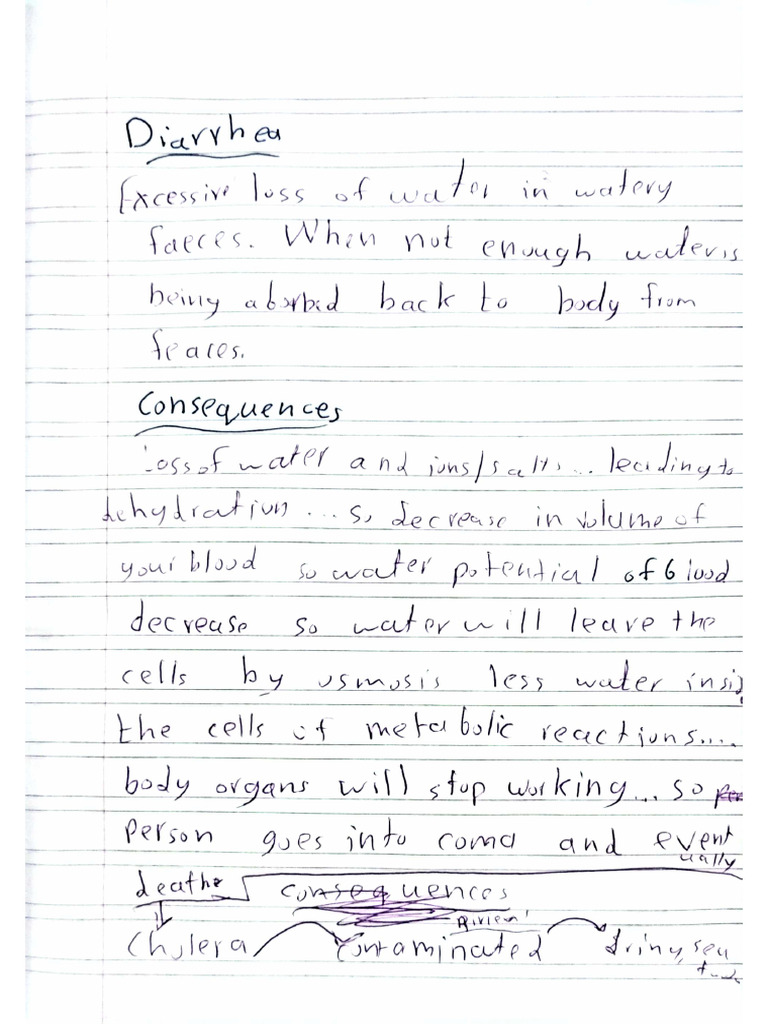 Diarrhea
Excessive loss of water in watery
faeces. When not enough water is
being aborbid back to body from
feaces.
Consequences
Loss of water and ions/salts... leading to
dehydration... so decrease in volume of
your blood so water potential of blood
decrease so water will leave the
cells by osmosis less water insi
the cells of metabolic reactions....
body organs will stop working... so
person goes into coma and event
ually
death consequences
Cholera contaminated